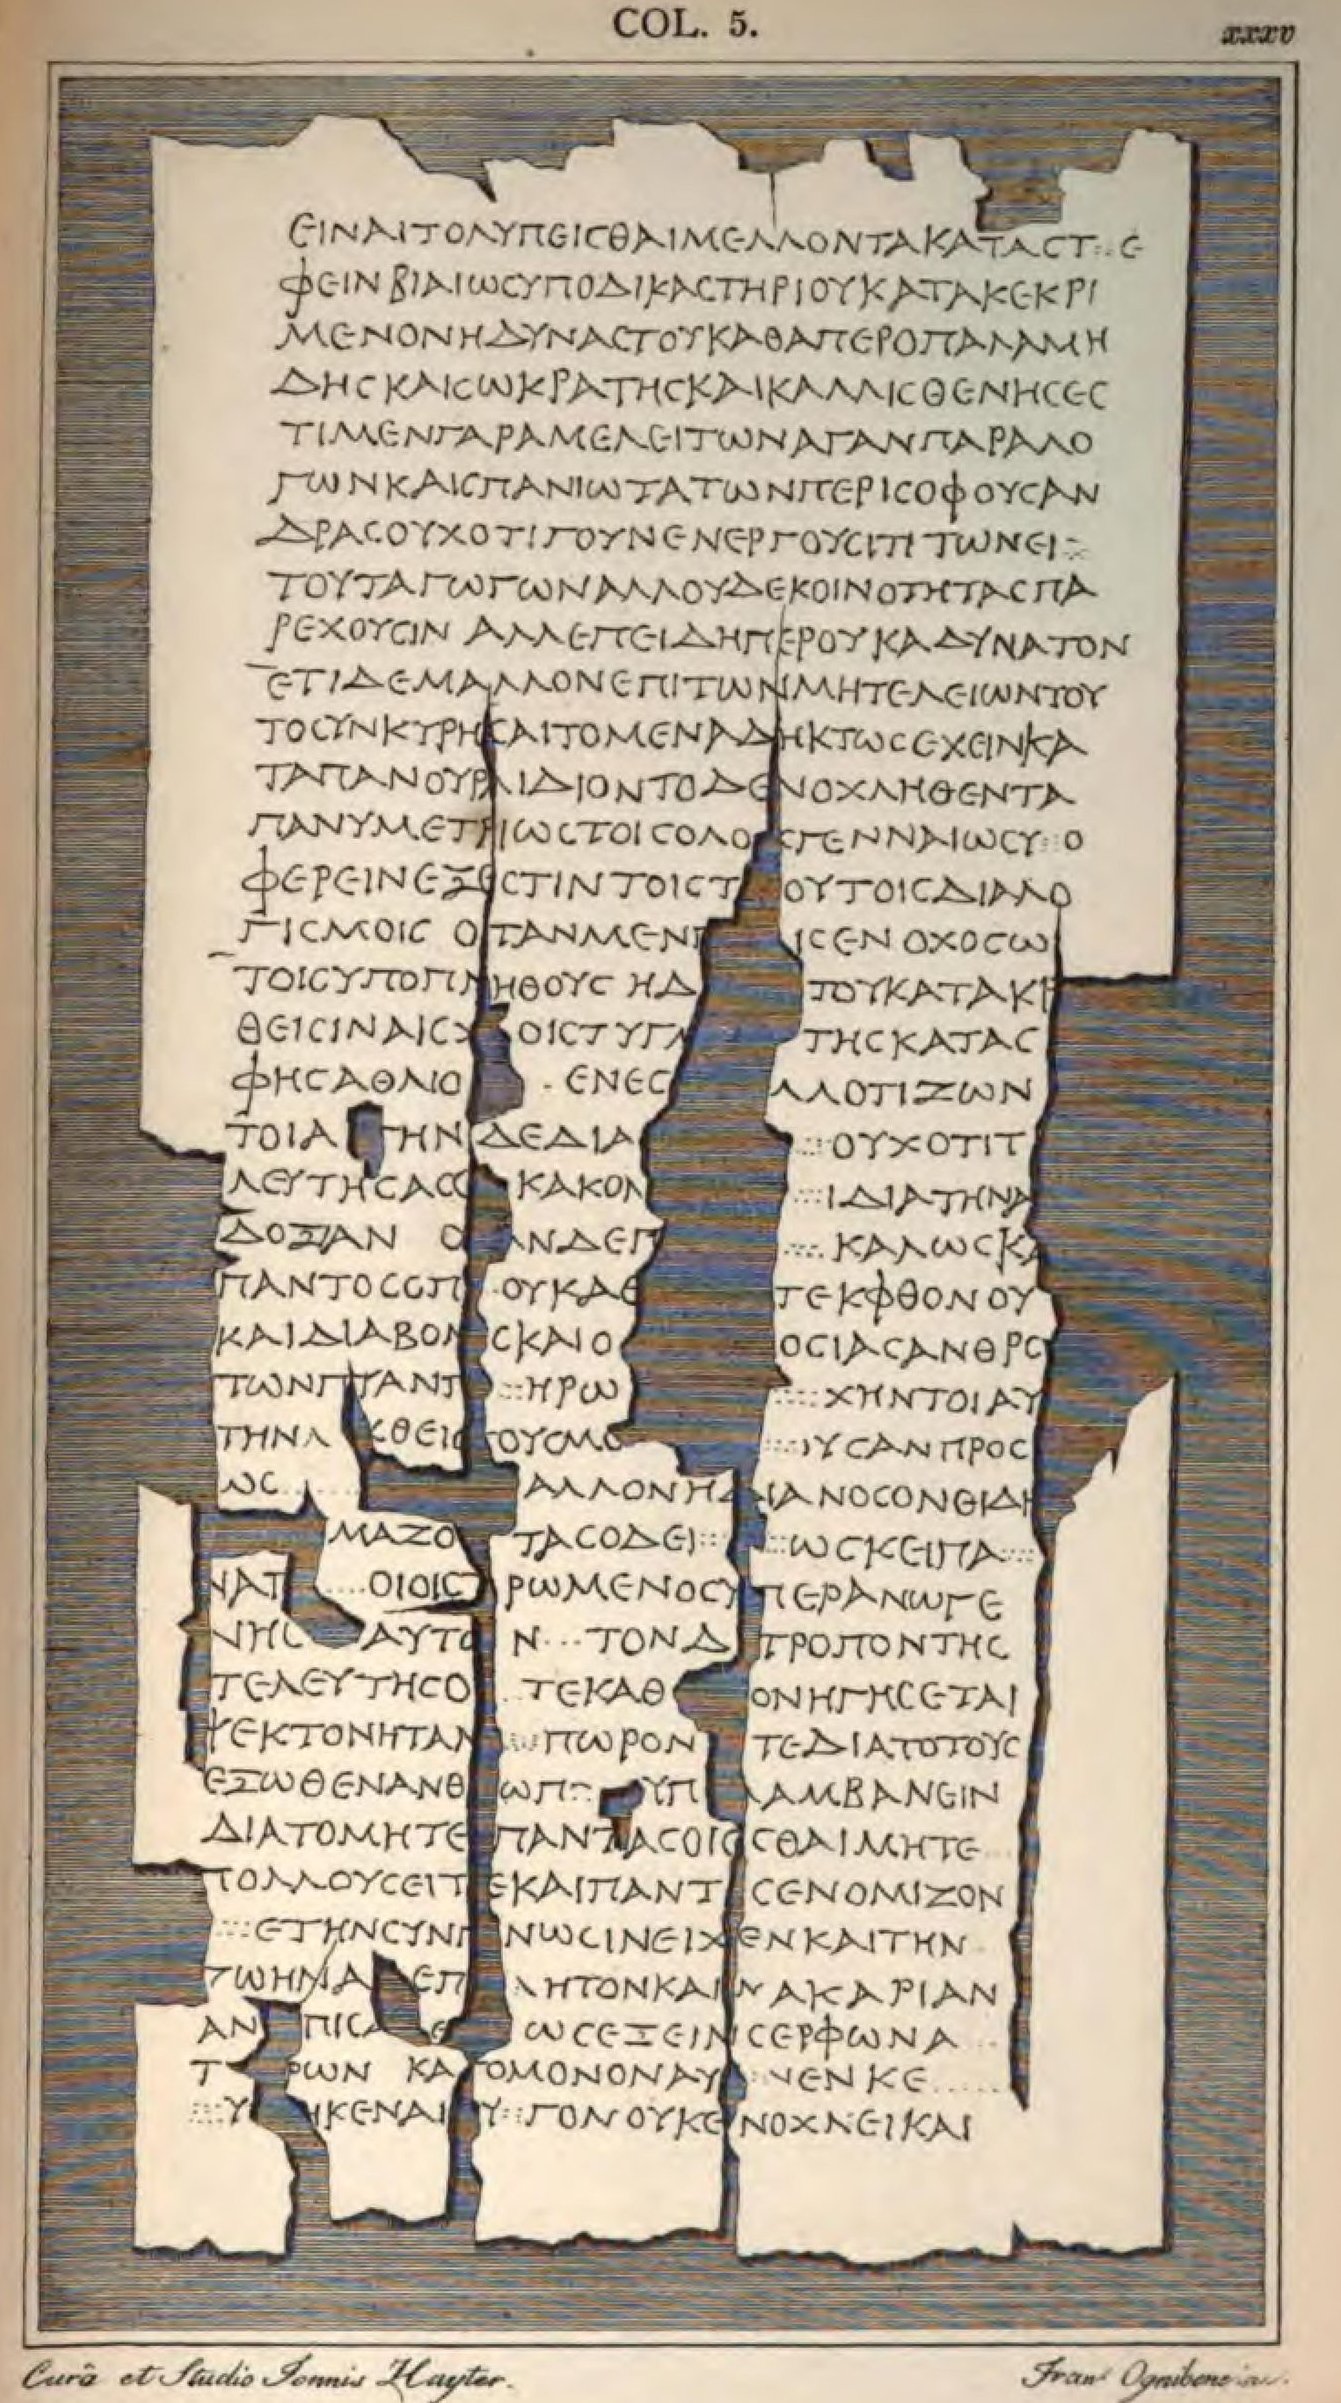 COL. 5.
xxxv
ЄΙΝΑΙΤΟΛΥΠЄΙϹΘΑΙΜЄΛΛΟΝΤΑΚΑΤΑϹΤ:..Є
ΦЄΙΝΒΙΑΙωϹΥΠΟΔΙΚΑϹΤΗΡΙΟΥΚΑΤΑΚЄΚΡΙ
ΜЄΝΟΝΗΔΥΝΑϹΤΟΥΚΑΘΑΠЄΡΟΠΑΛΑΜΗ
ΔΗϹΚΑΙϹωΚΡΑΤΗϹΚΑΙΚΑΛΛΙϹΘЄΝΗϹЄϹ
ΤΙΜЄΝΓΑΡΑΜЄΛЄΙΤωΝΑΓΑΝΠΑΡΑΛΟ
ΓωΝΚΑΙϹΠΑΝΙωΤΑΤωΝΠЄΡΙϹΟΦΟΥϹΑΝ
ΔΡΑϹΟΥΧΟΤΙΓΟΥΝЄΝЄΡΓΟΥϹΙΤΙΤωΝЄΙ::
ΤΟΥΤΑΓωΓωΝΑΛΛΟΥΔЄΚΟΙΝΟΤΗΤΑϹΠΑ
ΡЄΧΟΥϹΙΝ ΑΛΛЄΠЄΙΔΗΠЄΡΟΥΚΑΔΥΝΑΤΟΝ
ЄΤΙΔЄΜΑΛΛΟΝЄΠΙΤωΝΜΗΤЄΛЄΙωΝΤΟΥ
ΤΟϹΥΝΚΥΡΗϹΑΙΤΟΜЄΝΑΔΗΚΤωϹЄΧЄΙΝΚΑ
ΤΑΠΑΝΟΥΡΛΙΔΙΟΝΤΟΔЄΝΟΧΛΗΘЄΝΤΑ
ΠΑΝΥΜЄΤΡΙωϹΤΟΙϹΟΛΟ ϹΓЄΝΝΑΙωϹΥ::Ο
ΦЄΡЄΙΝЄΞЄϹΤΙΝΤΟΙϹΤ ΟΥΤΟΙϹΔΙΑΛΟ
ΓΙϹΜΟΙϹ ΟΤΑΝΜЄΝΓ ΙϹЄΝΟΧΟϹω
ΤΟΙϹΥΠΟΠΛΗΘΟΥϹ ΗΔ ΤΟΥΚΑΤΑΚΡ
ΘЄΙϹΙΝΑΙϹΧ ΟΙϹΤΥΓΛ ΤΗϹΚΑΤΑϹ
ΦΗϹΑΘΛΙΟ . ЄΝЄϹ ΛΛΟΤΙΖωΝ
ΤΟΙΑ ΤΗΝ ΔЄΔΙΑ :::ΟΥΧΟΤΙΤ
ΛЄΥΤΗϹΑϹϹ ΚΑΚΟΝ :::ΙΔΙΑΤΗΝΑ
ΔΟΞΑΝ Ο ΑΝΔЄΠ ::..ΚΑΛωϹΚΑ
ΠΑΝΤΟϹϹΠ .ΟΥΚΑΘ ΤЄΚΦΘΟΝΟΥ
ΚΑΙΔΙΑΒΟΛ ϹΚΑΙΟ ΟϹΙΑϹΑΝΘΡΟ
ΤωΝΠ ΤΑΝΤ :::ΗΡω ::::ΧΗΝΤΟΙΑΥ
ΤΗΝΛ ΚΘЄΙϹ ΤΟΥϹΜΟ :::ΙΥϹΑΝΠΡΟϹ
ωϹ...... ΑΛΛΟΝΗΔ ΙΑΝΟϹΟΝΘΙΔΗ
ΜΑΖΟ ΤΑϹΟΔЄΙ::: :::ωϹΚЄΙΠΑ::::
ΝΑΤ ....ΟΙΟΙϹΤ ΡωΜЄΝΟϹΥ ΠЄΡΑΝωΓЄ
ΝΗϹ ΑΥΤΟ Ν...ΤΟΝΔ ΤΡΟΠΟΝΤΗϹ
ΤЄΛЄΥΤΗϹΟ ..ΤЄΚΑΘ ΟΝΗΓΗϹЄΤΑΙ
ΨЄΚΤΟΝΗΤΑΛ :::ΠωΡΟΝ ΤЄΔΙΑΤΟΤΟΥϹ
ЄΞωΘЄΝΑΝΘ ωΠ::: ΥΠ ΛΑΜΒΑΝЄΙΝ
ΔΙΑΤΟΜΗΤЄ ΠΑΝΤΑϹΟΙϹ ϹΘΑΙΜΗΤЄ
ΤΟΛΛΟΥϹЄΙΤ ЄΚΑΙΠΑΝΤ ϹЄΝΟΜΙΖΟΝ
:::ЄΤΗΝϹΥΝΓ ΝωϹΙΝЄΙΧЄΝΚΑΙΤΗΝ
ΤωΗΜΑ ЄΠ ΛΗΤΟΝΚΑΙ ΜΑΚΑΡΙΑΝ
ΑΝ ΠΙϹΑ Є ωϹЄΞЄΙΝ ϹЄΡΦωΝΑ ..
Τ ΡωΝ ΚΑ ΤΟΜΟΝΟΝΑΥ ::ΝЄΝΚЄ.....
:::Υ ΗΚЄΝΑΙ Υ::ΓΟΝΟΥΚЄΝΟΧΛЄΙΚΑΙ
Curâ et Studio Ionnis Hayter.
Franˢ Ognibene inc.